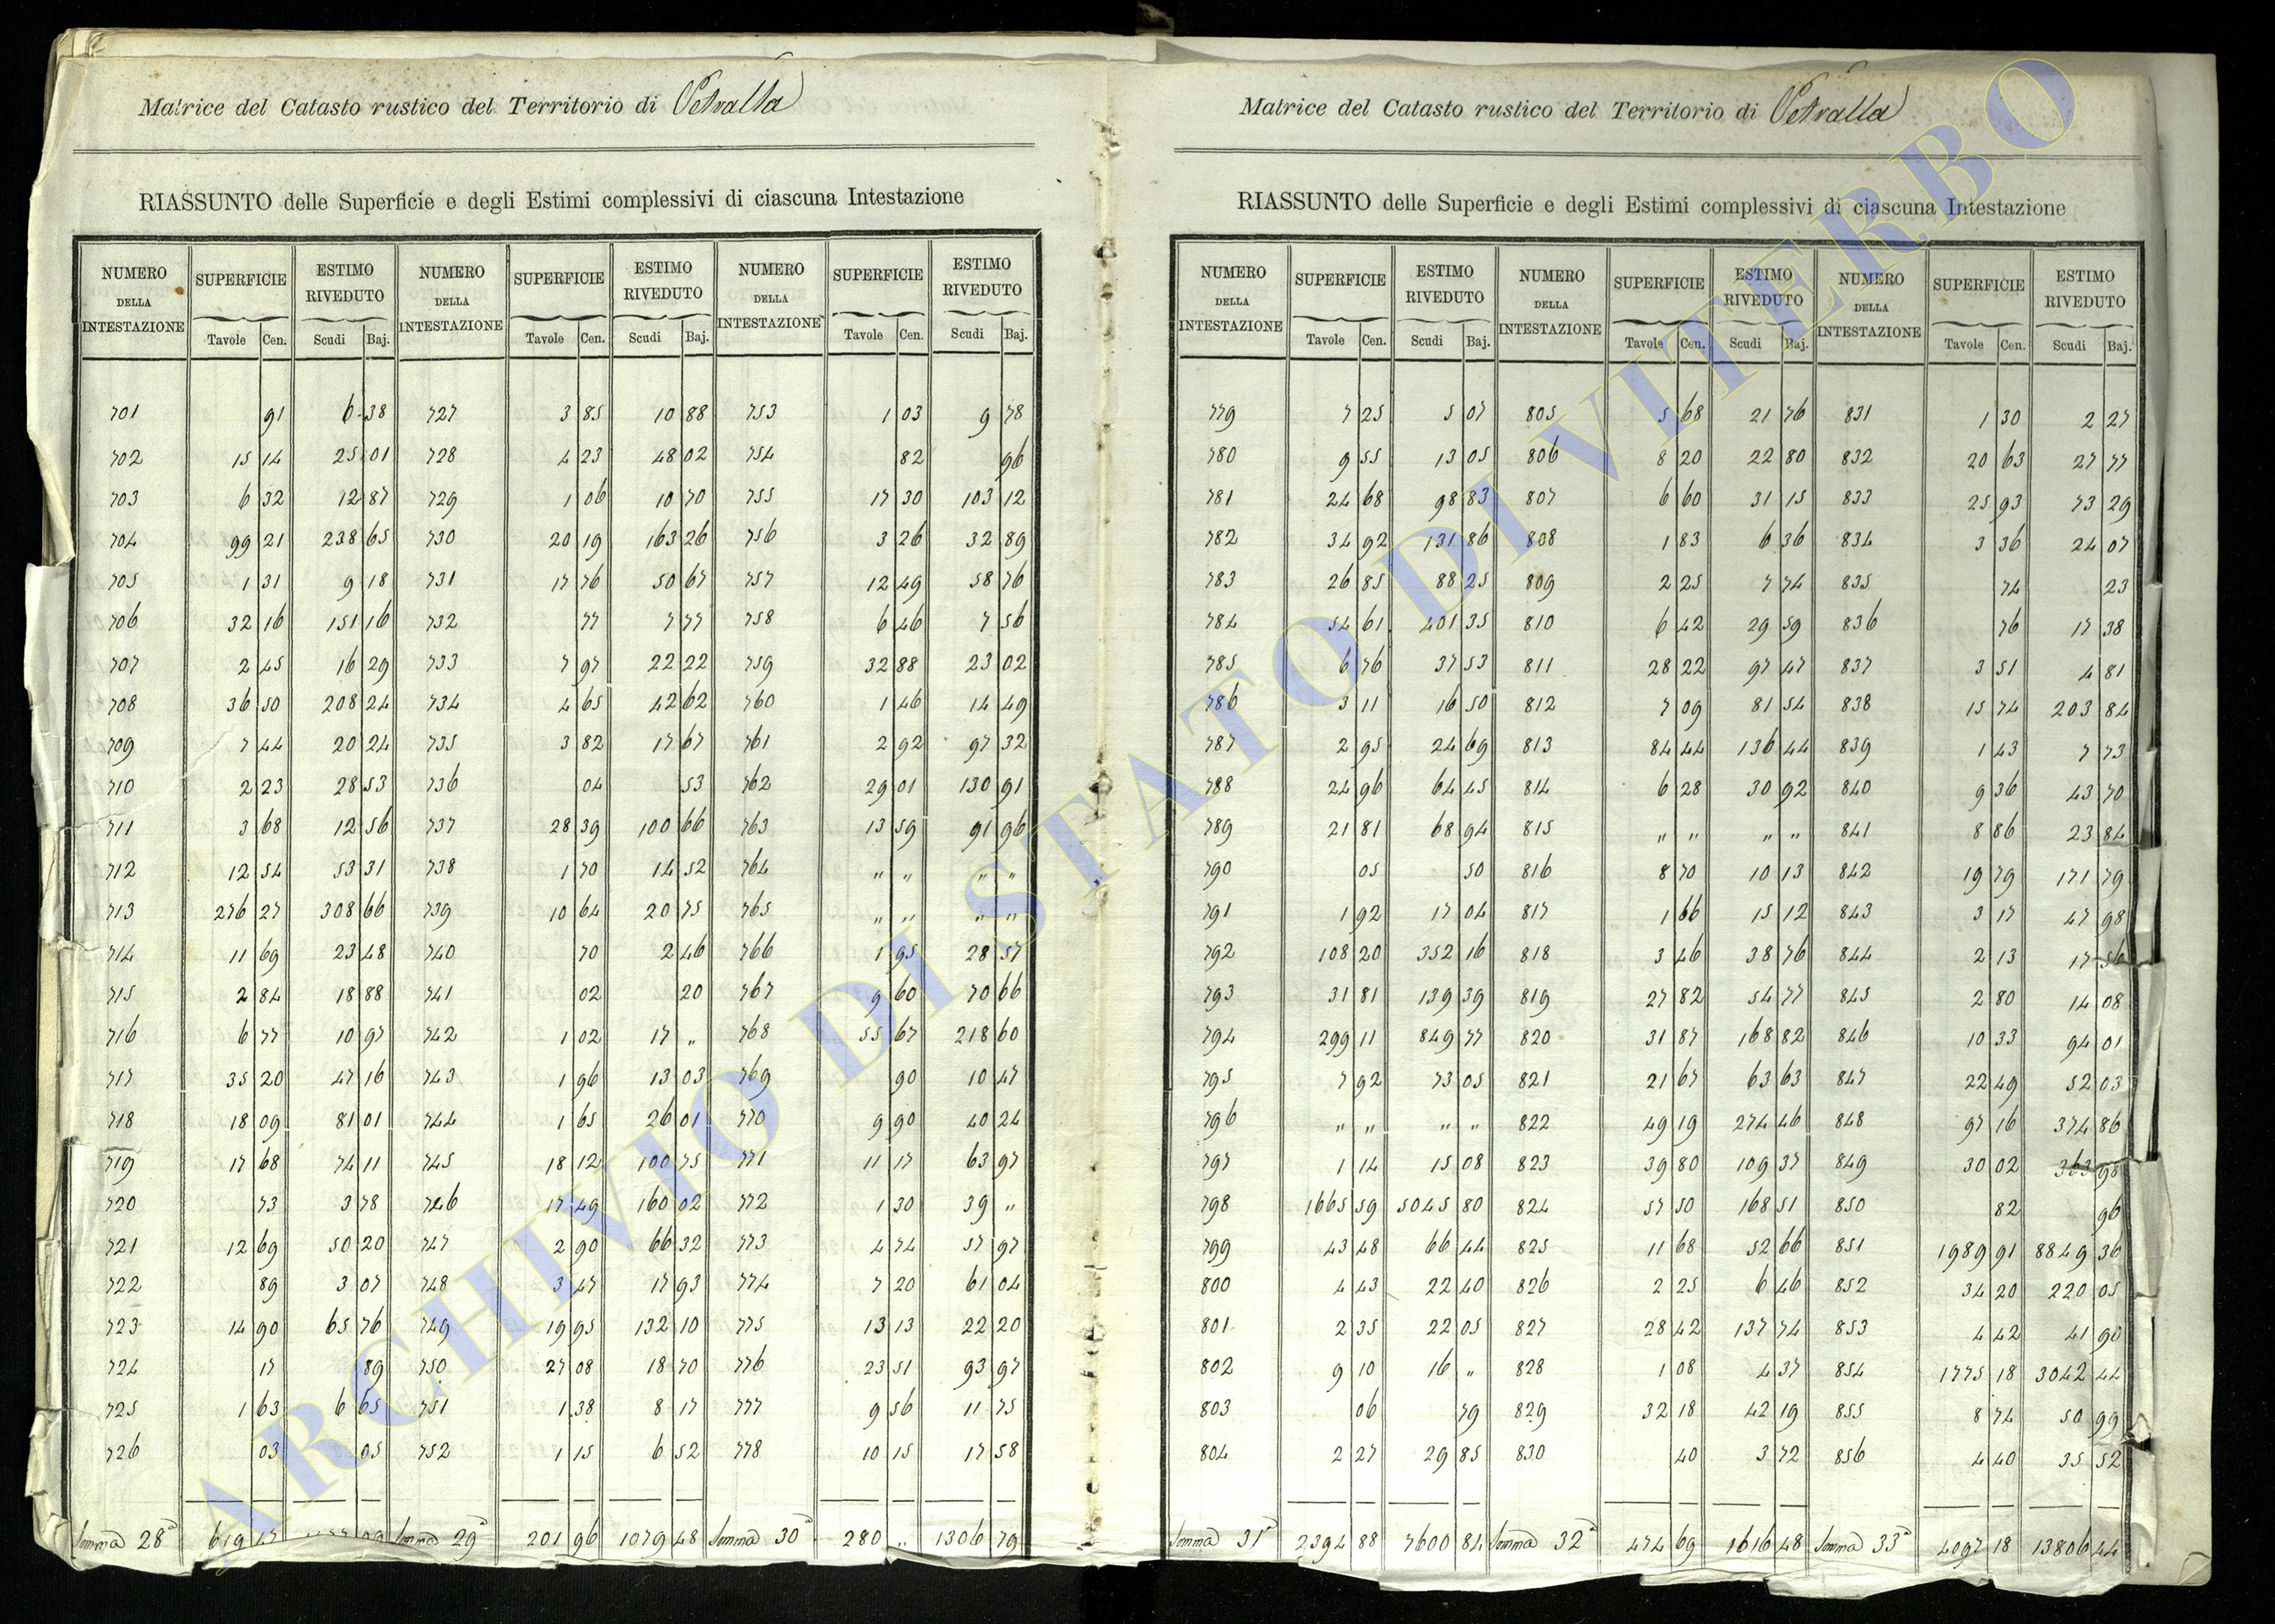 Matrice del Catasto rustico del Territorio di Vetralla
RIASSUNTO delle Superficie e degli Estimi complessivi di ciascuna Intestazione
NUMERO DELLA INTESTAZIONE SUPERFICIE ESTIMO RIVEDUTO NUMERO DELLA INTESTAZIONE SUPERFICIE ESTIMO RIVEDUTO NUMERO DELLA INTESTAZIONE SUPERFICIE ESTIMO RIVEDUTO
Tavole Cen. Scudi Baj. Tavole Cen. Scudi Baj. Tavole Cen. Scudi Baj.
701 91 6 38 727 3 85 10 88 753 1 03 9 78
702 15 14 25 01 728 4 23 48 02 754 82 96
703 6 32 12 87 729 1 06 10 70 755 17 30 103 12
704 99 21 238 65 730 20 19 163 26 756 3 26 32 89
705 1 31 9 18 731 17 76 50 67 757 12 49 58 76
706 32 16 151 16 732 77 7 77 758 6 46 7 56
707 2 45 16 29 733 7 97 22 22 759 32 88 23 02
708 36 50 208 24 734 4 65 42 62 760 1 46 14 49
709 7 44 20 24 735 3 82 17 67 761 2 92 97 32
710 2 23 28 53 736 04 53 762 29 01 130 91
711 3 68 12 56 737 28 39 100 66 763 13 59 91 96
712 12 54 53 31 738 1 70 14 52 764 " " " "
713 276 27 308 66 739 10 64 20 75 765 " " " "
714 11 69 23 48 740 70 2 46 766 1 95 28 57
715 2 84 18 88 741 02 20 767 9 60 70 66
716 6 77 10 97 742 1 02 17 " 768 55 67 218 60
717 35 20 47 16 743 1 96 13 03 769 90 10 47
718 18 09 81 01 744 1 65 26 01 770 9 90 40 24
719 17 68 74 11 745 18 12 100 75 771 11 17 63 97
720 73 3 78 746 17 49 160 02 772 1 30 39 "
721 12 69 50 20 747 2 90 66 32 773 4 74 57 97
722 89 3 07 748 3 47 17 93 774 7 20 61 04
723 14 90 65 76 749 19 95 132 10 775 13 13 22 20
724 17 89 750 27 08 18 70 776 23 51 93 97
725 1 63 6 65 751 1 38 8 17 777 9 56 11 75
726 03 05 752 1 15 6 52 778 10 15 17 58
Somma 28ª 619 17 09 Somma 29ª 201 96 1079 48 Somma 30ª 280 " 1306 79
Matrice del Catasto rustico del Territorio di Vetralla
RIASSUNTO delle Superficie e degli Estimi complessivi di ciascuna Intestazione
NUMERO DELLA INTESTAZIONE SUPERFICIE ESTIMO RIVEDUTO NUMERO DELLA INTESTAZIONE SUPERFICIE ESTIMO RIVEDUTO NUMERO DELLA INTESTAZIONE SUPERFICIE ESTIMO RIVEDUTO
Tavole Cen. Scudi Baj. Tavole Cen. Scudi Baj. Tavole Cen. Scudi Baj.
779 7 25 5 07 805 5 68 21 76 831 1 30 2 27
780 9 55 13 05 806 8 20 22 80 832 20 63 27 77
781 24 68 98 83 807 6 60 31 15 833 25 93 73 29
782 34 92 131 86 808 1 83 6 36 834 3 36 24 07
783 26 85 88 25 809 2 25 7 74 835 74 23
784 54 61 401 35 810 6 42 29 59 836 76 17 38
785 6 76 37 53 811 28 22 97 47 837 3 51 4 81
786 3 11 16 50 812 7 09 81 54 838 15 74 203 84
787 2 95 24 69 813 84 44 136 44 839 1 43 7 73
788 24 96 64 45 814 6 28 30 92 840 9 36 43 70
789 21 81 68 94 815 " " " " 841 8 86 23 84
790 05 50 816 8 70 10 13 842 19 79 171 79
791 1 92 17 04 817 1 66 15 12 843 3 17 47 98
792 108 20 352 16 818 3 46 38 76 844 2 13 17 56
793 31 81 139 39 819 27 82 54 77 845 2 80 14 08
794 299 11 849 77 820 31 87 168 82 846 10 33 94 01
795 7 92 73 05 821 21 67 63 63 847 22 49 52 03
796 " " " " 822 49 19 274 46 848 97 16 374 86
797 1 14 15 08 823 39 80 109 37 849 30 02 363 98
798 1665 59 5045 80 824 57 50 168 51 850 82 96
799 43 48 66 44 825 11 68 52 66 851 1989 91 8849 36
800 4 43 22 40 826 2 25 6 46 852 34 20 220 05
801 2 35 22 05 827 28 42 137 74 853 4 42 41 90
802 9 10 16 " 828 1 08 4 37 854 1775 18 3042 44
803 06 79 829 32 18 42 19 855 8 74 50 99
804 2 27 29 85 830 40 3 72 856 4 40 35 52
Somma 31ª 2394 88 7600 84 Somma 32ª 474 69 1616 48 Somma 33ª 4097 18 13806 44
ARCHIVIO DI STATO DI VITERBO